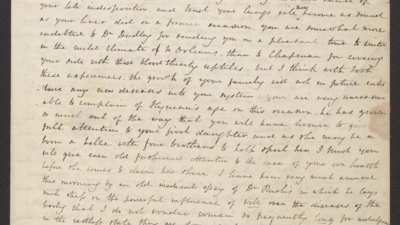 your late indisposition, and trust your lungs will become as sound
as your liver did on a former occasion. you are somewhat more
indebted to Dr Dudley for sending you on a pleasant tour to winter
in the mild climate of N Orleans. than to Chapman for covering
your side with those blood thirsty reptiles. but I think with both
these experiences. the growth of your family will not in future
have any new diseases into your system you are very unreason
able to complain of Heymann's age on this occasion. he has grown
so much out of the way that you will have leisure to give
full attention to your first daughter and as she may be a
born a belle with four brothers to help spoil her. I trust you
will give some old fashioned attention to the case of your own health
before she comes to claim her share. I have been very much amused
this morning by an old medical essay of Dr Rush's in which he lays
such stress on the powerful influence of bile over the diseases of the
body that I do not wonder women so frequently long for
in the restless state they are